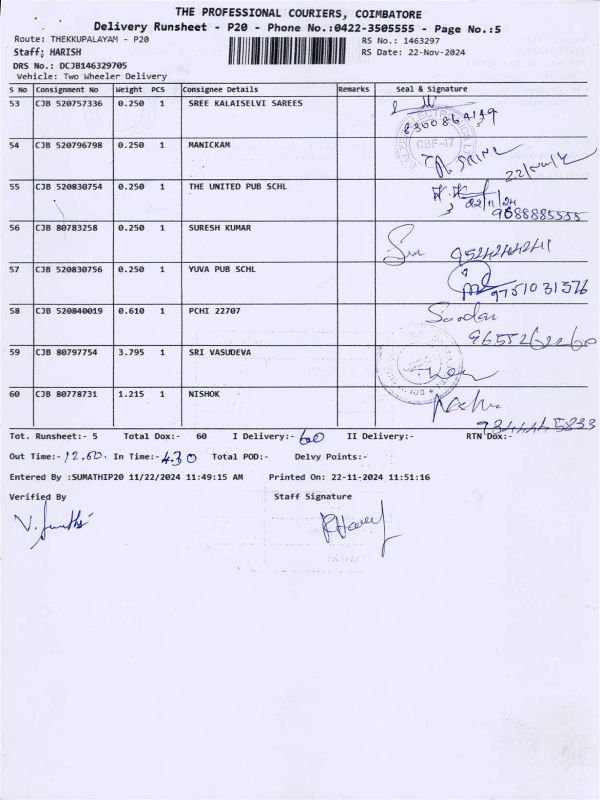 THE PROFESSIONAL COURIERS, COIMBATORE
Delivery Runsheet - P20 - Phone No.:0422-3505555 - Page No.:5
Route: THEKKUPALAYAM - P20 RS No.: 1463297
Staff; HARISH RS Date: 22-Nov-2024
DRS No.: DCJB146329705
Vehicle: Two Wheeler Delivery
S No Consignment No Weight PCS Consignee Details Remarks Seal & Signature
53 CJB 520757336 0.250 1 SREE KALAISELVI SAREES
54 CJB 520796798 0.250 1 MANICKAM CBF-47
55 CJB 520830754 0.250 1 THE UNITED PUB SCHL 22/11/24
9688885555
56 CJB 80783258 0.250 1 SURESH KUMAR
57 CJB 520830756 0.250 1 YUVA PUB SCHL 9751031576
58 CJB 520840019 0.610 1 PCHI 22707
59 CJB 80797754 3.795 1 SRI VASUDEVA
60 CJB 80778731 1.215 1 NISHOK
Tot. Runsheet:- 5 Total Dox:- 60 I Delivery:- 60 II Delivery:- RTN Dox:-
Out Time:- 12.00. In Time:- 4.30 Total POD:- Delvy Points:-
Entered By :SUMATHIP20 11/22/2024 11:49:15 AM Printed On: 22-11-2024 11:51:16
Verified By Staff Signature